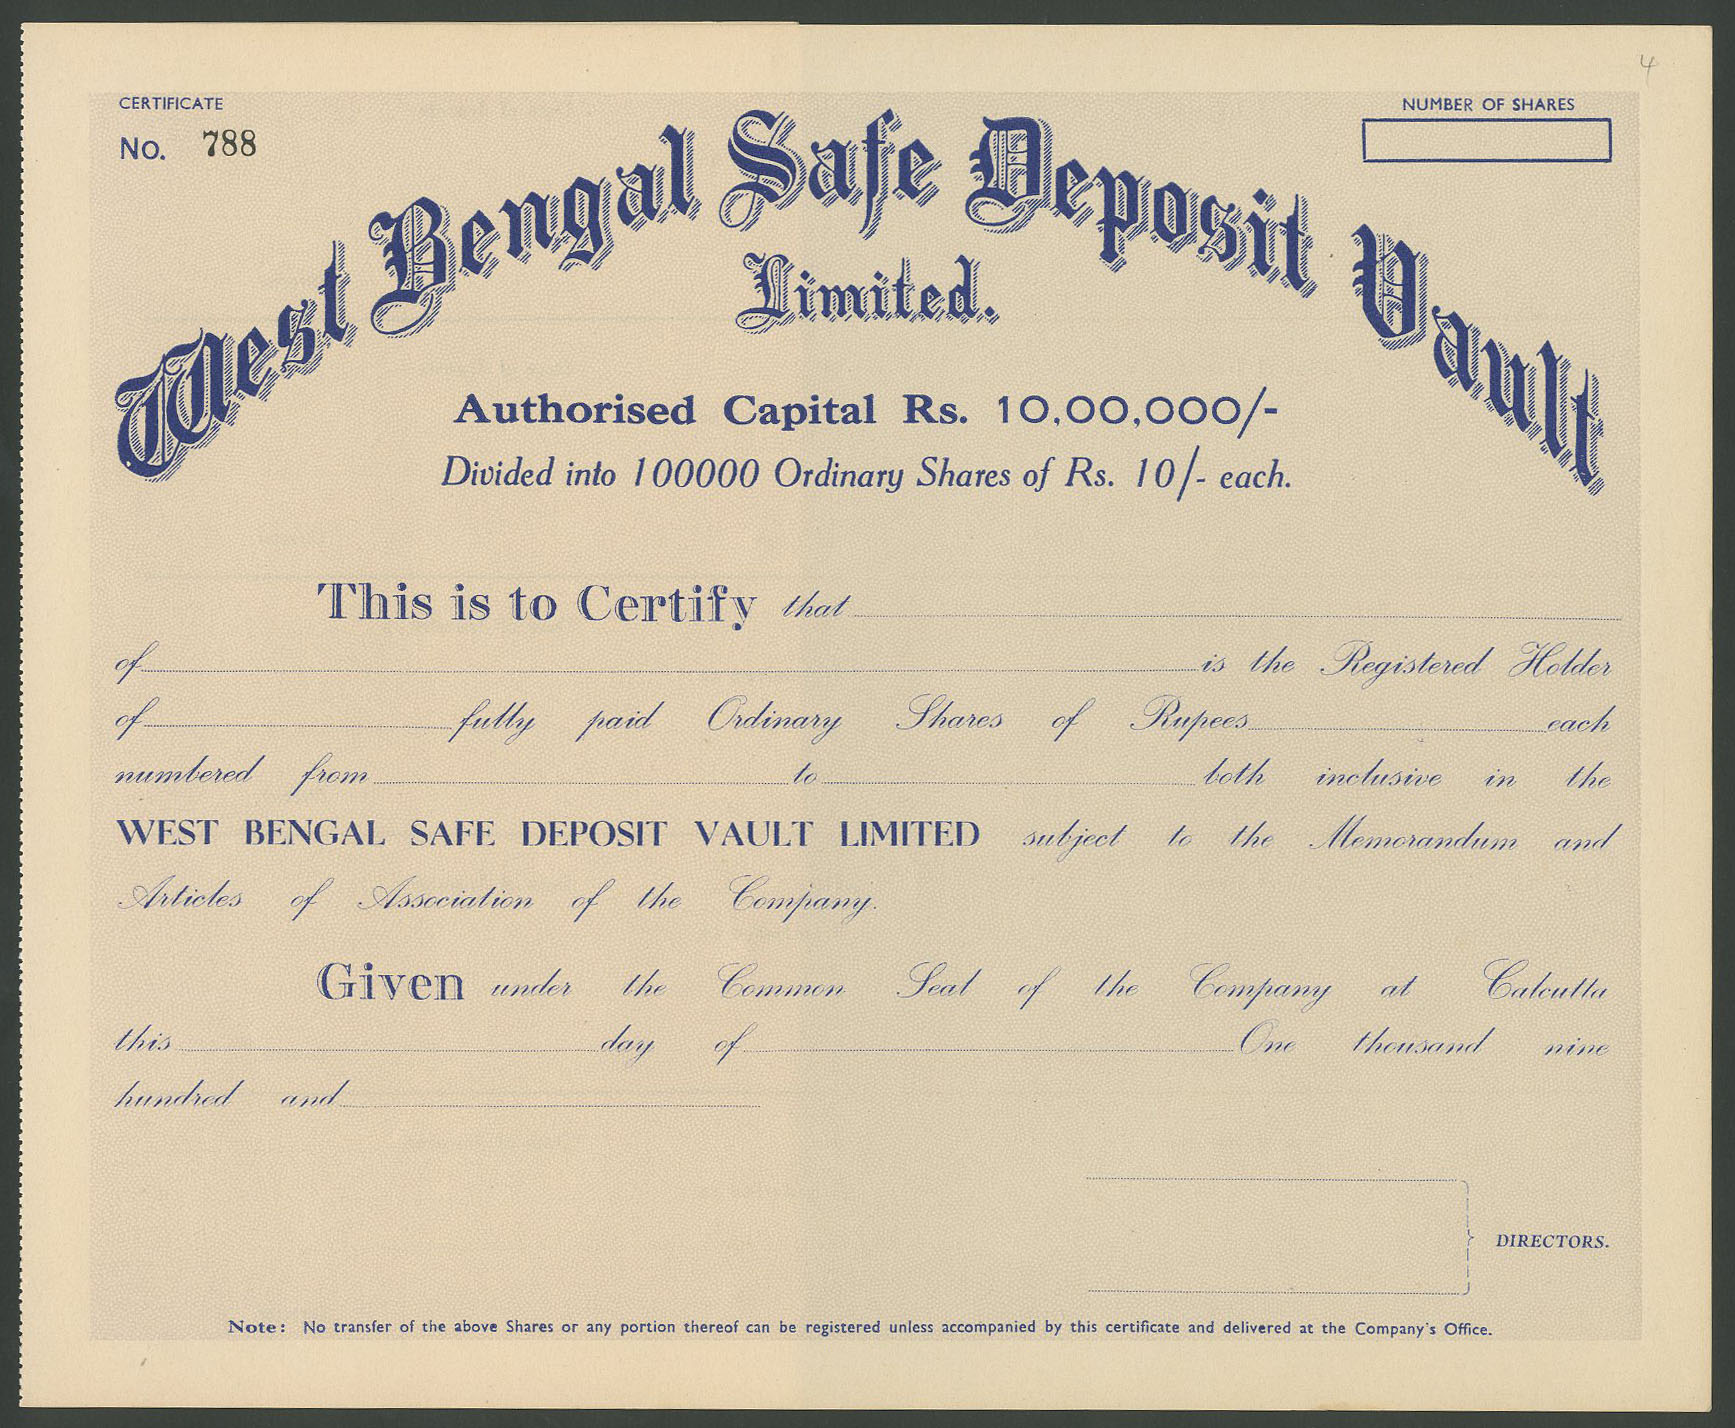 4
CERTIFICATE
No. 788
NUMBER OF SHARES
West Bengal Safe Deposit Vault
Limited.
Authorised Capital Rs. 10,00,000/-
Divided into 100000 Ordinary Shares of Rs. 10/- each.
This is to Certify that
of is the Registered Holder
of fully paid Ordinary Shares of Rupees each
numbered from to both inclusive in the
WEST BENGAL SAFE DEPOSIT VAULT LIMITED subject to the Memorandum and
Articles of Association of the Company.
Given under the Common Seal of the Company at Calcutta
this day of One thousand nine
hundred and
DIRECTORS.
Note: No transfer of the above Shares or any portion thereof can be registered unless accompanied by this certificate and delivered at the Company's Office.